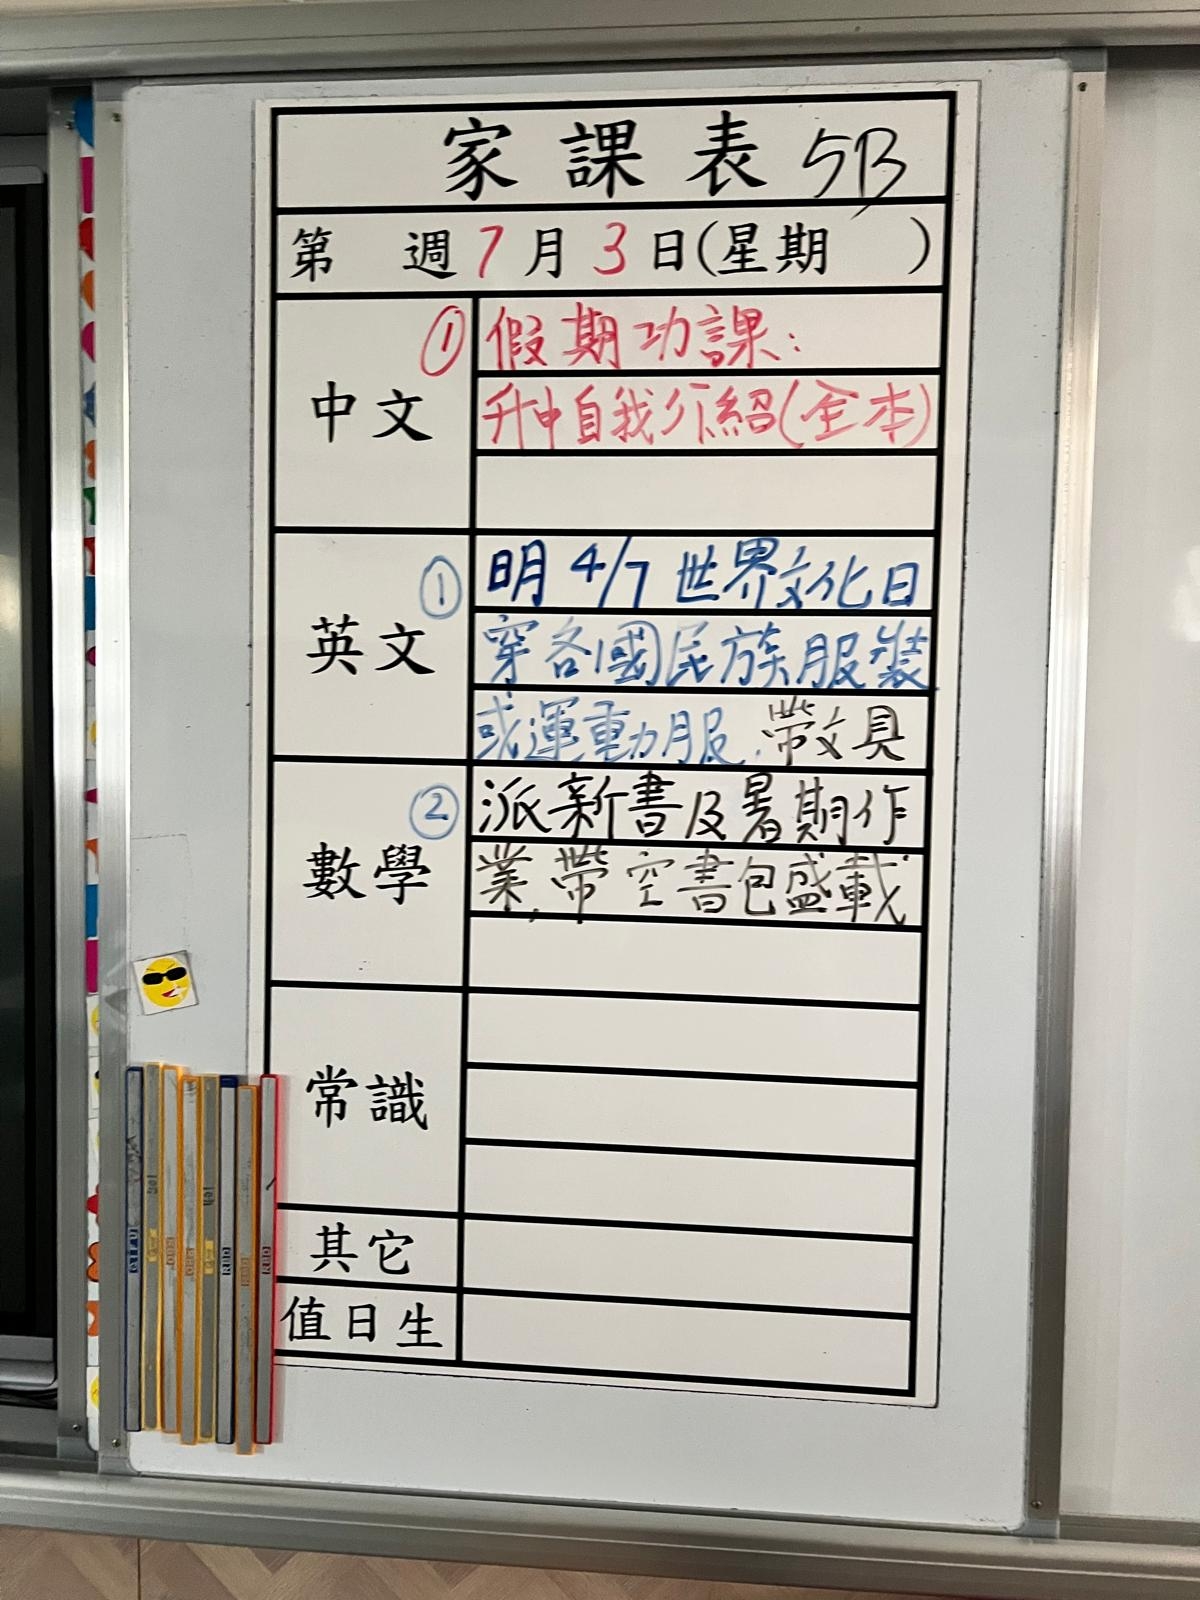 家課表 5B
第 週 7月3日(星期 )
中文
① 假期功課:
升中自我介紹(全本)
英文
① 明 4/7 世界文化日
穿各國民族服裝
或運動服.帶文具
數學
② 派新書及暑期作
業,帶空書包盛載
常識
其它
值日生